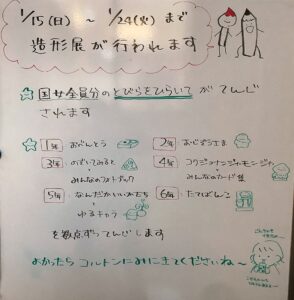 1/15(日) ~ 1/24(火) まで
造形展が行われます
☆国女全員分のとびらをひらいて がてんじ
されます
☆1年 おべんとう 2年 おじぞうさま
3年 のぞいてみると 4年
みんなのフォトブック みんなのカード
5年 なんだかいいかたち 6年 たてばんこ
ゆるキャラ
を数点ずつてんじします
よかったら コルトンにみにきてくださいね~